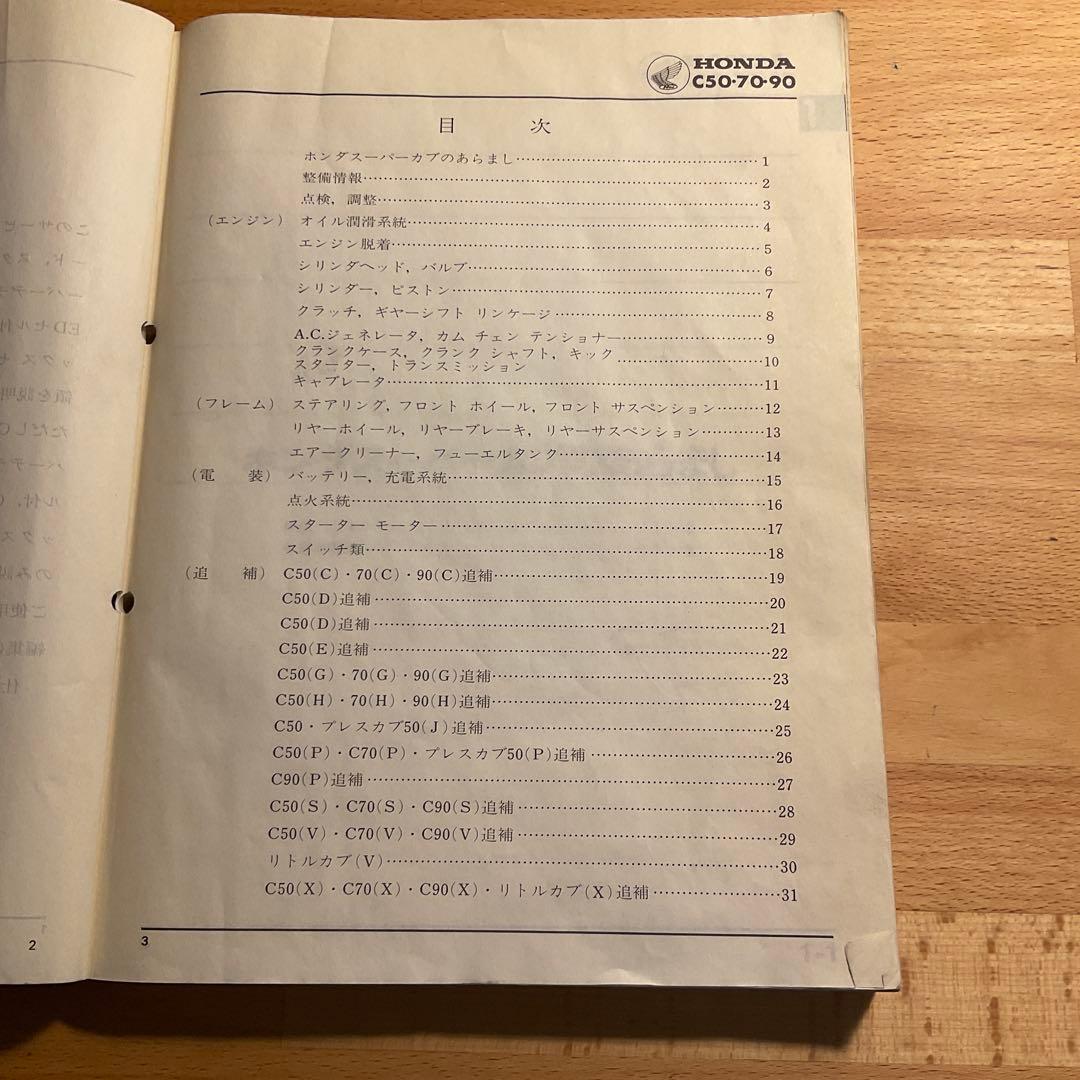 HONDA
C50·70·90
目 次
ホンダスーパーカブのあらまし……………1
整備情報……………2
点検，調整……………3
（エンジン） オイル潤滑系統……………4
エンジン脱着……………5
シリンダヘッド，バルブ……………6
シリンダー，ピストン……………7
クラッチ，ギヤーシフト リンケージ……………8
A.C.ジェネレータ，カム チェン テンショナー……………9
クランクケース，クランク シャフト，キック
スターター，トランスミッション……………10
キャブレータ……………11
（フレーム） ステアリング，フロント ホイール，フロント サスペンション………12
リヤーホイール，リヤーブレーキ，リヤーサスペンション……………13
エアークリーナー，フューエルタンク……………14
（電 装） バッテリー，充電系統……………15
点火系統……………16
スターター モーター……………17
スイッチ類……………18
（追 補） C50(C)・70(C)・90(C)追補……………19
C50(D)追補……………20
C50(D)追補……………21
C50(E)追補……………22
C50(G)・70(G)・90(G)追補……………23
C50(H)・70(H)・90(H)追補……………24
C50・プレスカブ50(J)追補……………25
C50(P)・C70(P)・プレスカブ50(P)追補……………26
C90(P)追補……………27
C50(S)・C70(S)・C90(S)追補……………28
C50(V)・C70(V)・C90(V)追補……………29
リトルカブ(V)……………30
C50(X)・C70(X)・C90(X)・リトルカブ(X)追補……………31
2
3